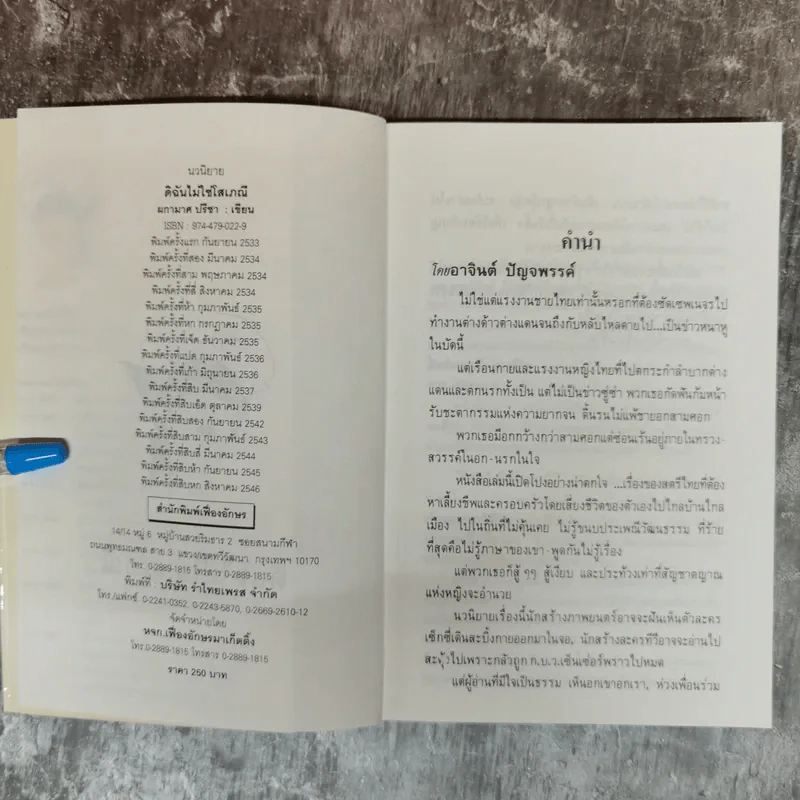 นวนิยาย
ดิฉันไม่ใช่โสเภณี
ผกามาศ ปรีชา : เขียน
ISBN : 974-479-022-9
พิมพ์ครั้งแรก กันยายน 2533
พิมพ์ครั้งที่สอง มีนาคม 2534
พิมพ์ครั้งที่สาม พฤษภาคม 2534
พิมพ์ครั้งที่สี่ สิงหาคม 2534
พิมพ์ครั้งที่ห้า กุมภาพันธ์ 2535
พิมพ์ครั้งที่หก กรกฎาคม 2535
พิมพ์ครั้งที่เจ็ด ธันวาคม 2535
พิมพ์ครั้งที่แปด กุมภาพันธ์ 2536
พิมพ์ครั้งที่เก้า มิถุนายน 2536
พิมพ์ครั้งที่สิบ มีนาคม 2537
พิมพ์ครั้งที่สิบเอ็ด ตุลาคม 2539
พิมพ์ครั้งที่สิบสอง กันยายน 2542
พิมพ์ครั้งที่สิบสาม กุมภาพันธ์ 2543
พิมพ์ครั้งที่สิบสี่ มีนาคม 2544
พิมพ์ครั้งที่สิบห้า กันยายน 2545
พิมพ์ครั้งที่สิบหก สิงหาคม 2546
สำนักพิมพ์เฟื่องอักษร
14/14 หมู่ 6 หมู่บ้านสวยริมธาร 2 ซอยสนามกีฬา
ถนนพุทธมณฑล สาย 3 แขวง/เขตทวีวัฒนา กรุงเทพฯ 10170
โทร. 0-2889-1815 โทรสาร 0-2889-1815
พิมพ์ที่ : บริษัท รำไทยเพรส จำกัด
โทร./แฟ็กซ์. 0-2241-0352, 0-2243-5870, 0-2669-2610-12
จัดจำหน่ายโดย
หจก.เฟื่องอักษรมาเก็ตติ้ง
โทร.0-2889-1815 โทรสาร 0-2889-1815
ราคา 250 บาท
คำนำ
โดยอาจินต์ ปัญจพรรค์
ไม่ใช่แต่แรงงานชายไทยเท่านั้นหรอกที่ต้องซัดเซพเนจรไป
ทำงานต่างด้าวต่างแดนจนถึงกับหลับไหลตายไป...เป็นข่าวหนาหู
ในบัดนี้
แต่เรือนกายและแรงงานหญิงไทยที่ไปตกระกำลำบากต่าง
แดนและตกนรกทั้งเป็น แต่ไม่เป็นข่าวซู่ซ่า พวกเธอกัดฟันก้มหน้า
รับชะตากรรมแห่งความยากจน ดิ้นรนไม่แพ้ชายอกสามศอก
พวกเธอมีอกกว้างกว่าสามศอกแต่ซ่อนเร้นอยู่ภายในทรวง-
สวรรค์ในอก-นรกในใจ
หนังสือเล่มนี้เปิดโปงอย่างน่าตกใจ ...เรื่องของสตรีไทยที่ต้อง
หาเลี้ยงชีพและครอบครัวโดยเสี่ยงชีวิตของตัวเองไปไกลบ้านไกล
เมือง ไปในถิ่นที่ไม่คุ้นเคย ไม่รู้ขนบประเพณีวัฒนธรรม ที่ร้าย
ที่สุดคือไม่รู้ภาษาของเขา-พูดกันไม่รู้เรื่อง
แต่พวกเธอก็สู้ ๆๆ สู้เงียบ และประท้วงเท่าที่สัญชาตญาณ
แห่งหญิงจะอำนวย
นวนิยายเรื่องนี้นักสร้างภาพยนตร์อาจจะฝันเห็นตัวละคร
เซ็กซี่เดินสะบิ้งกายออกมาในจอ, นักสร้างละครทีวีอาจจะอ่านไป
สะดุ้งไปเพราะกลัวถูก ก.บ.ว.เซ็นเซ่อร์พราวไปหมด
แต่ผู้อ่านที่มีใจเป็นธรรม เห็นอกเขาอกเรา, ห่วงเพื่อนร่วม